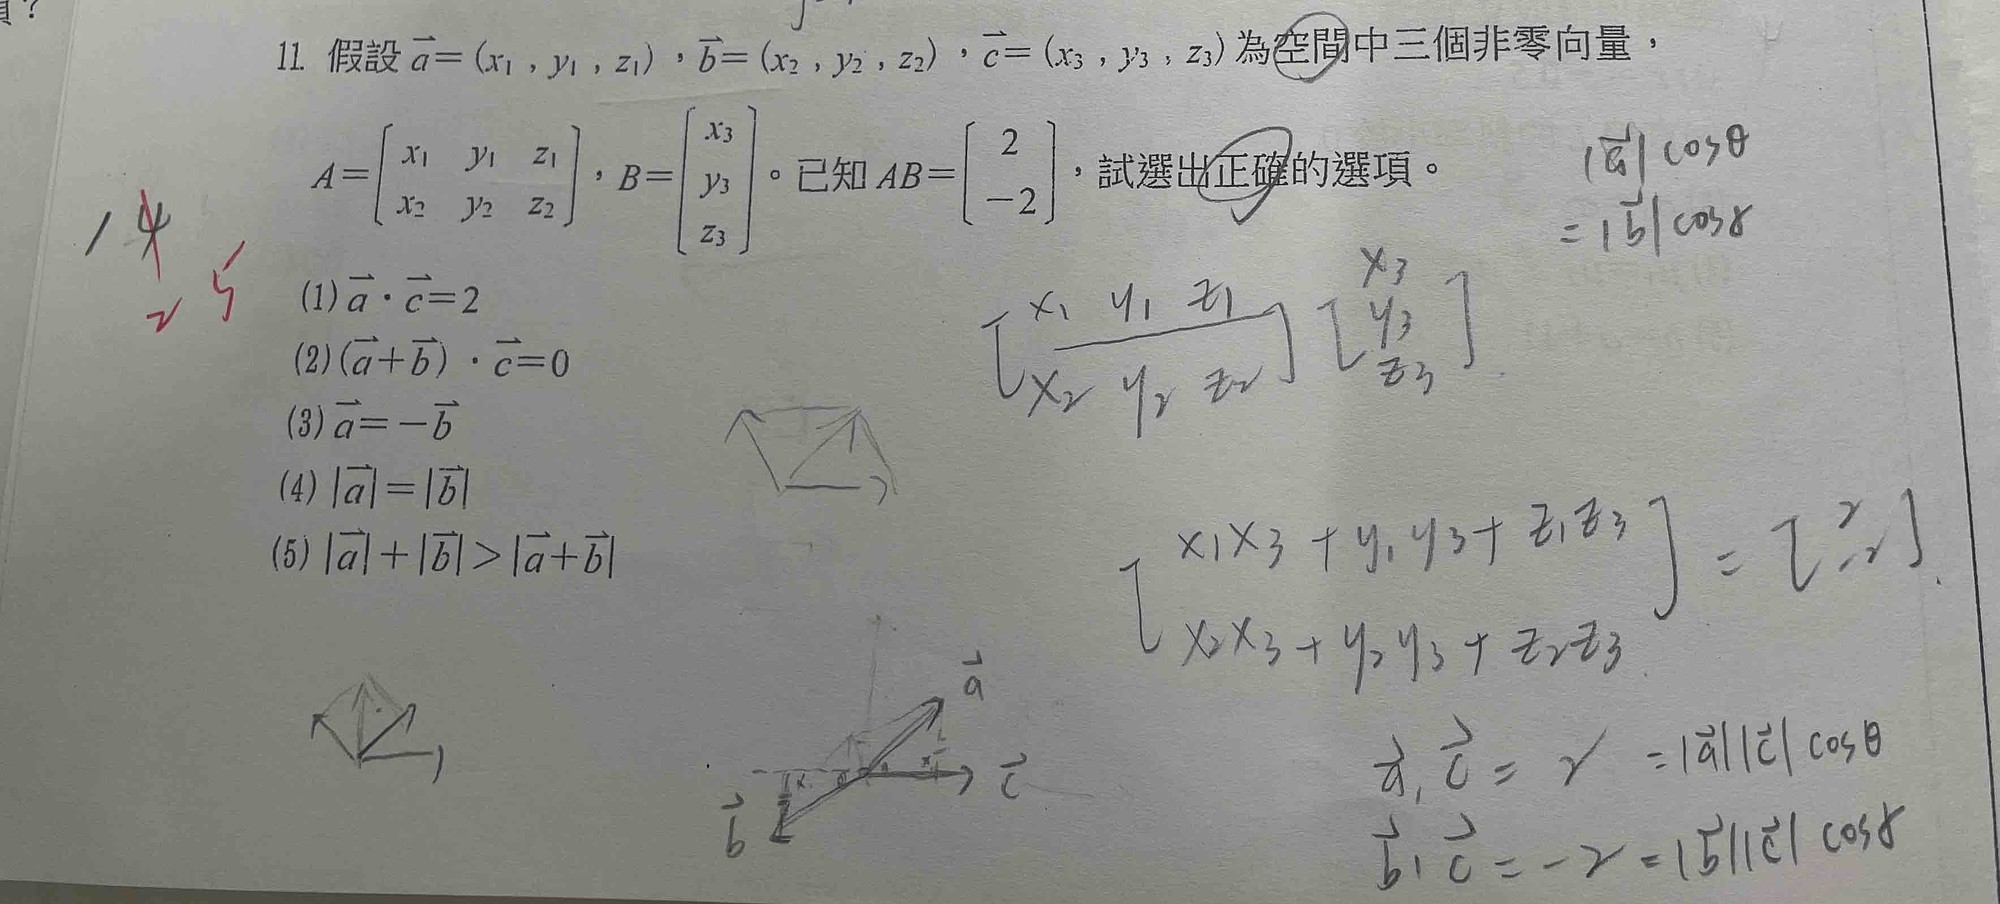 11. 假設 a⃗=(x₁,y₁,z₁),b⃗=(x₂,y₂,z₂),c⃗=(x₃,y₃,z₃)為空間中三個非零向量,
A=[x₁ y₁ z₁; x₂ y₂ z₂],B=[x₃; y₃; z₃]。已知 AB=[2; −2],試選出正確的選項。
|a⃗| cosθ
= |b⃗| cosγ
1 4
2 5
(1) a⃗·c⃗=2
(2) (a⃗+b⃗)·c⃗=0
(3) a⃗=−b⃗
(4) |a⃗|=|b⃗|
(5) |a⃗|+|b⃗|>|a⃗+b⃗|
[x₁ y₁ z₁; x₂ y₂ z₂] [x₃; y₃; z₃]
[x₁x₃+y₁y₃+z₁z₃; x₂x₃+y₂y₃+z₂z₃] = [2; −2]
a⃗
c⃗
b⃗
a⃗·c⃗ = 2 = |a⃗||c⃗| cosθ
b⃗·c⃗ = −2 = |b⃗||c⃗| cosγ